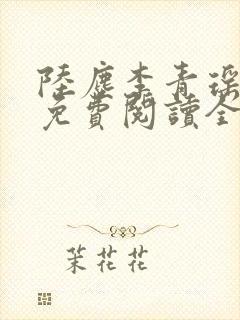 陸塵李青瑤
免費閱讀全
茉花花